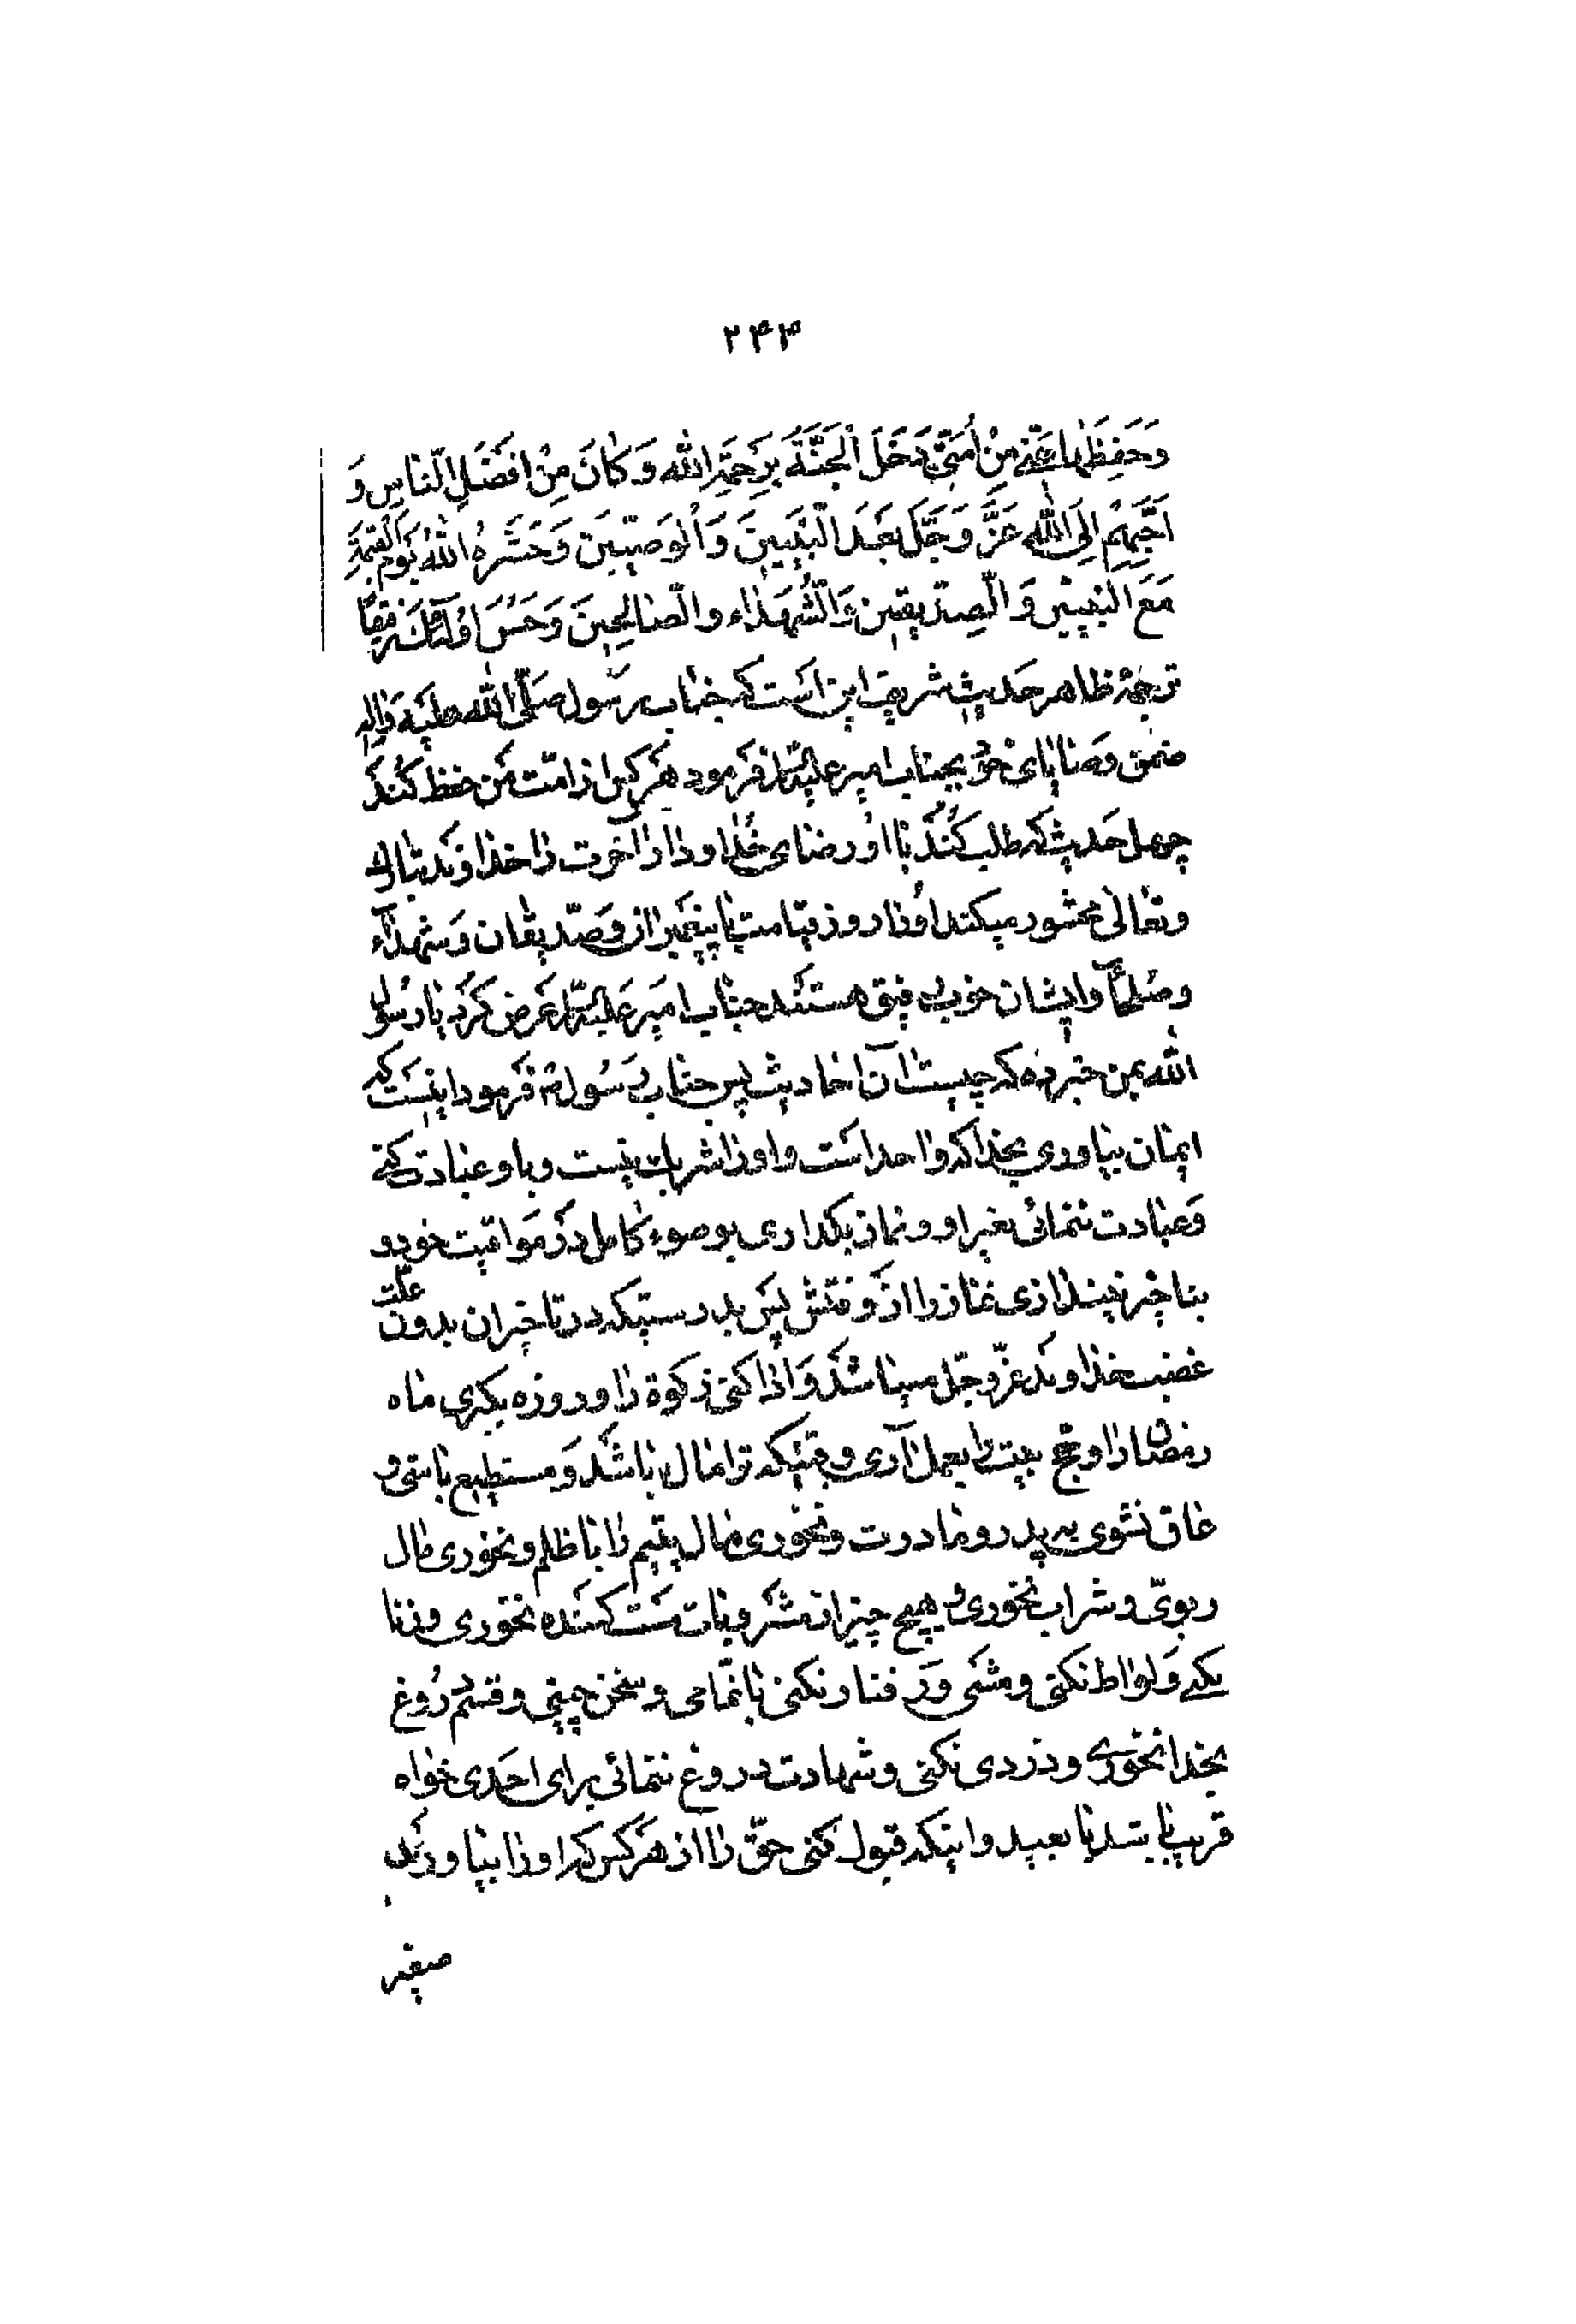 ۲۴۴
وَحَفِظَهٰا عَنّٖے مِنْ اُمَّتٖی دَخَلَ الْجَنَّةَ بِرَحْمَةِ اللّٰه وَ كٰانَ مِنْ اَفْضَلِ النّاسِ وَ
اَحَبِّهِمْ اِلَی اللّٰهِ عَزَّ وَ جَلَّ بَعْدَ النَّبِیّٖینَ وَ الْوَصِیّٖینَ وَ حَشَرَهُ اللّٰهُ یَوْمَ الْقِیٰمَةِ
مَعَ النَّبِیّٖینَ وَ الصِّدّٖیقٖینَ وَ الشُّهَدٰاء وَ الصّٰالِحٖینَ وَ حَسُنَ اُولٰٓئِكَ رَفٖیقًا
ترجمهٔ ظاهر حدیث شریف این است که جناب رسول صَلَّی اللّٰه علیه و اله
ضمن وصایای خود بجناب امیر علیه السّلام فرمود هر کس از امّت من حفظ کند
چهل حدیث که طلب کند با او رضای خدا و دار آخرت را خداوند تبارک
و تعالی محشور میکند او را روز قیامت با پیغمبران و صدّیقان و شهدآء
و صلحآ و ایشان خوب رفیق هستند جناب امیر علیه السّلام عرض کرد یا رسول
اللّٰه بمن خبر ده که چیست آن احادیث پس جناب رسول ص فرمود اینست که
ایمان بیاوری بخدا که واحد است و او را شریک نیست و باو عبادت کنی
و عبادت ننمائی بغیر او و نماز بگذاری بوضوء کامل در مواقیت خود و
بتاخیر نیندازی نماز را از وقتش پس بدرستیکه در تاخیر ان بدون علّت
غضب خداوند عزّ و جلّ میباشد و ادا کنی زکوة را و روزه بگیری ماه
رمضان را و حج بیت را بعمل آری وقتیکه ترا مال باشد و مستطیع باشی و
عاق نشوی به پدر و مادرت و نخوری مال یتیم را با ظلم و نخوری مال
ربویّ و شراب نخوری و هیچ چیز از مشروبات مست کننده نخوری و زنا
نکنی و لواط نکنی و مشی و رفتار نکنی با نمّامی و سخن چینی و قسم دروغ
بخدا نخوری و دزدی نکنی و شهادت دروغ ننمائی برای احدی خواه
قریب باشد یا بعید و اینکه قبول کنی حقّ را از هر کس که او را بیاورد
صغیر